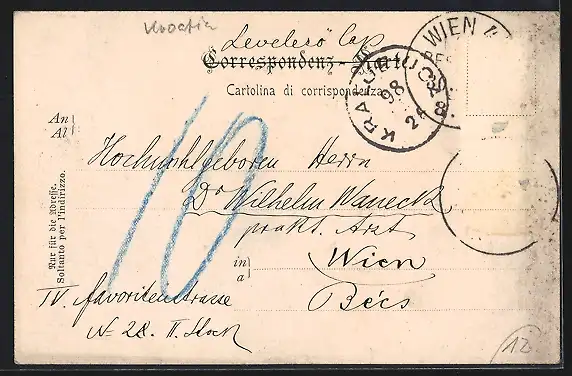 Kroatien
Levelező Lap
Correspondenz-Karte
Cartolina di corrispondenza
WIEN 4
KRALJEVICA
98
An
Al
Hochwohlgeboren Herrn
Dr Wilhelm Waneck
prakt. Arzt
in
a
Wien
Bécs
IV. Favoritenstrasse
No 28. II. Stock
10
Nur für die Adresse.
Soltanto per l'indirizzo.
12